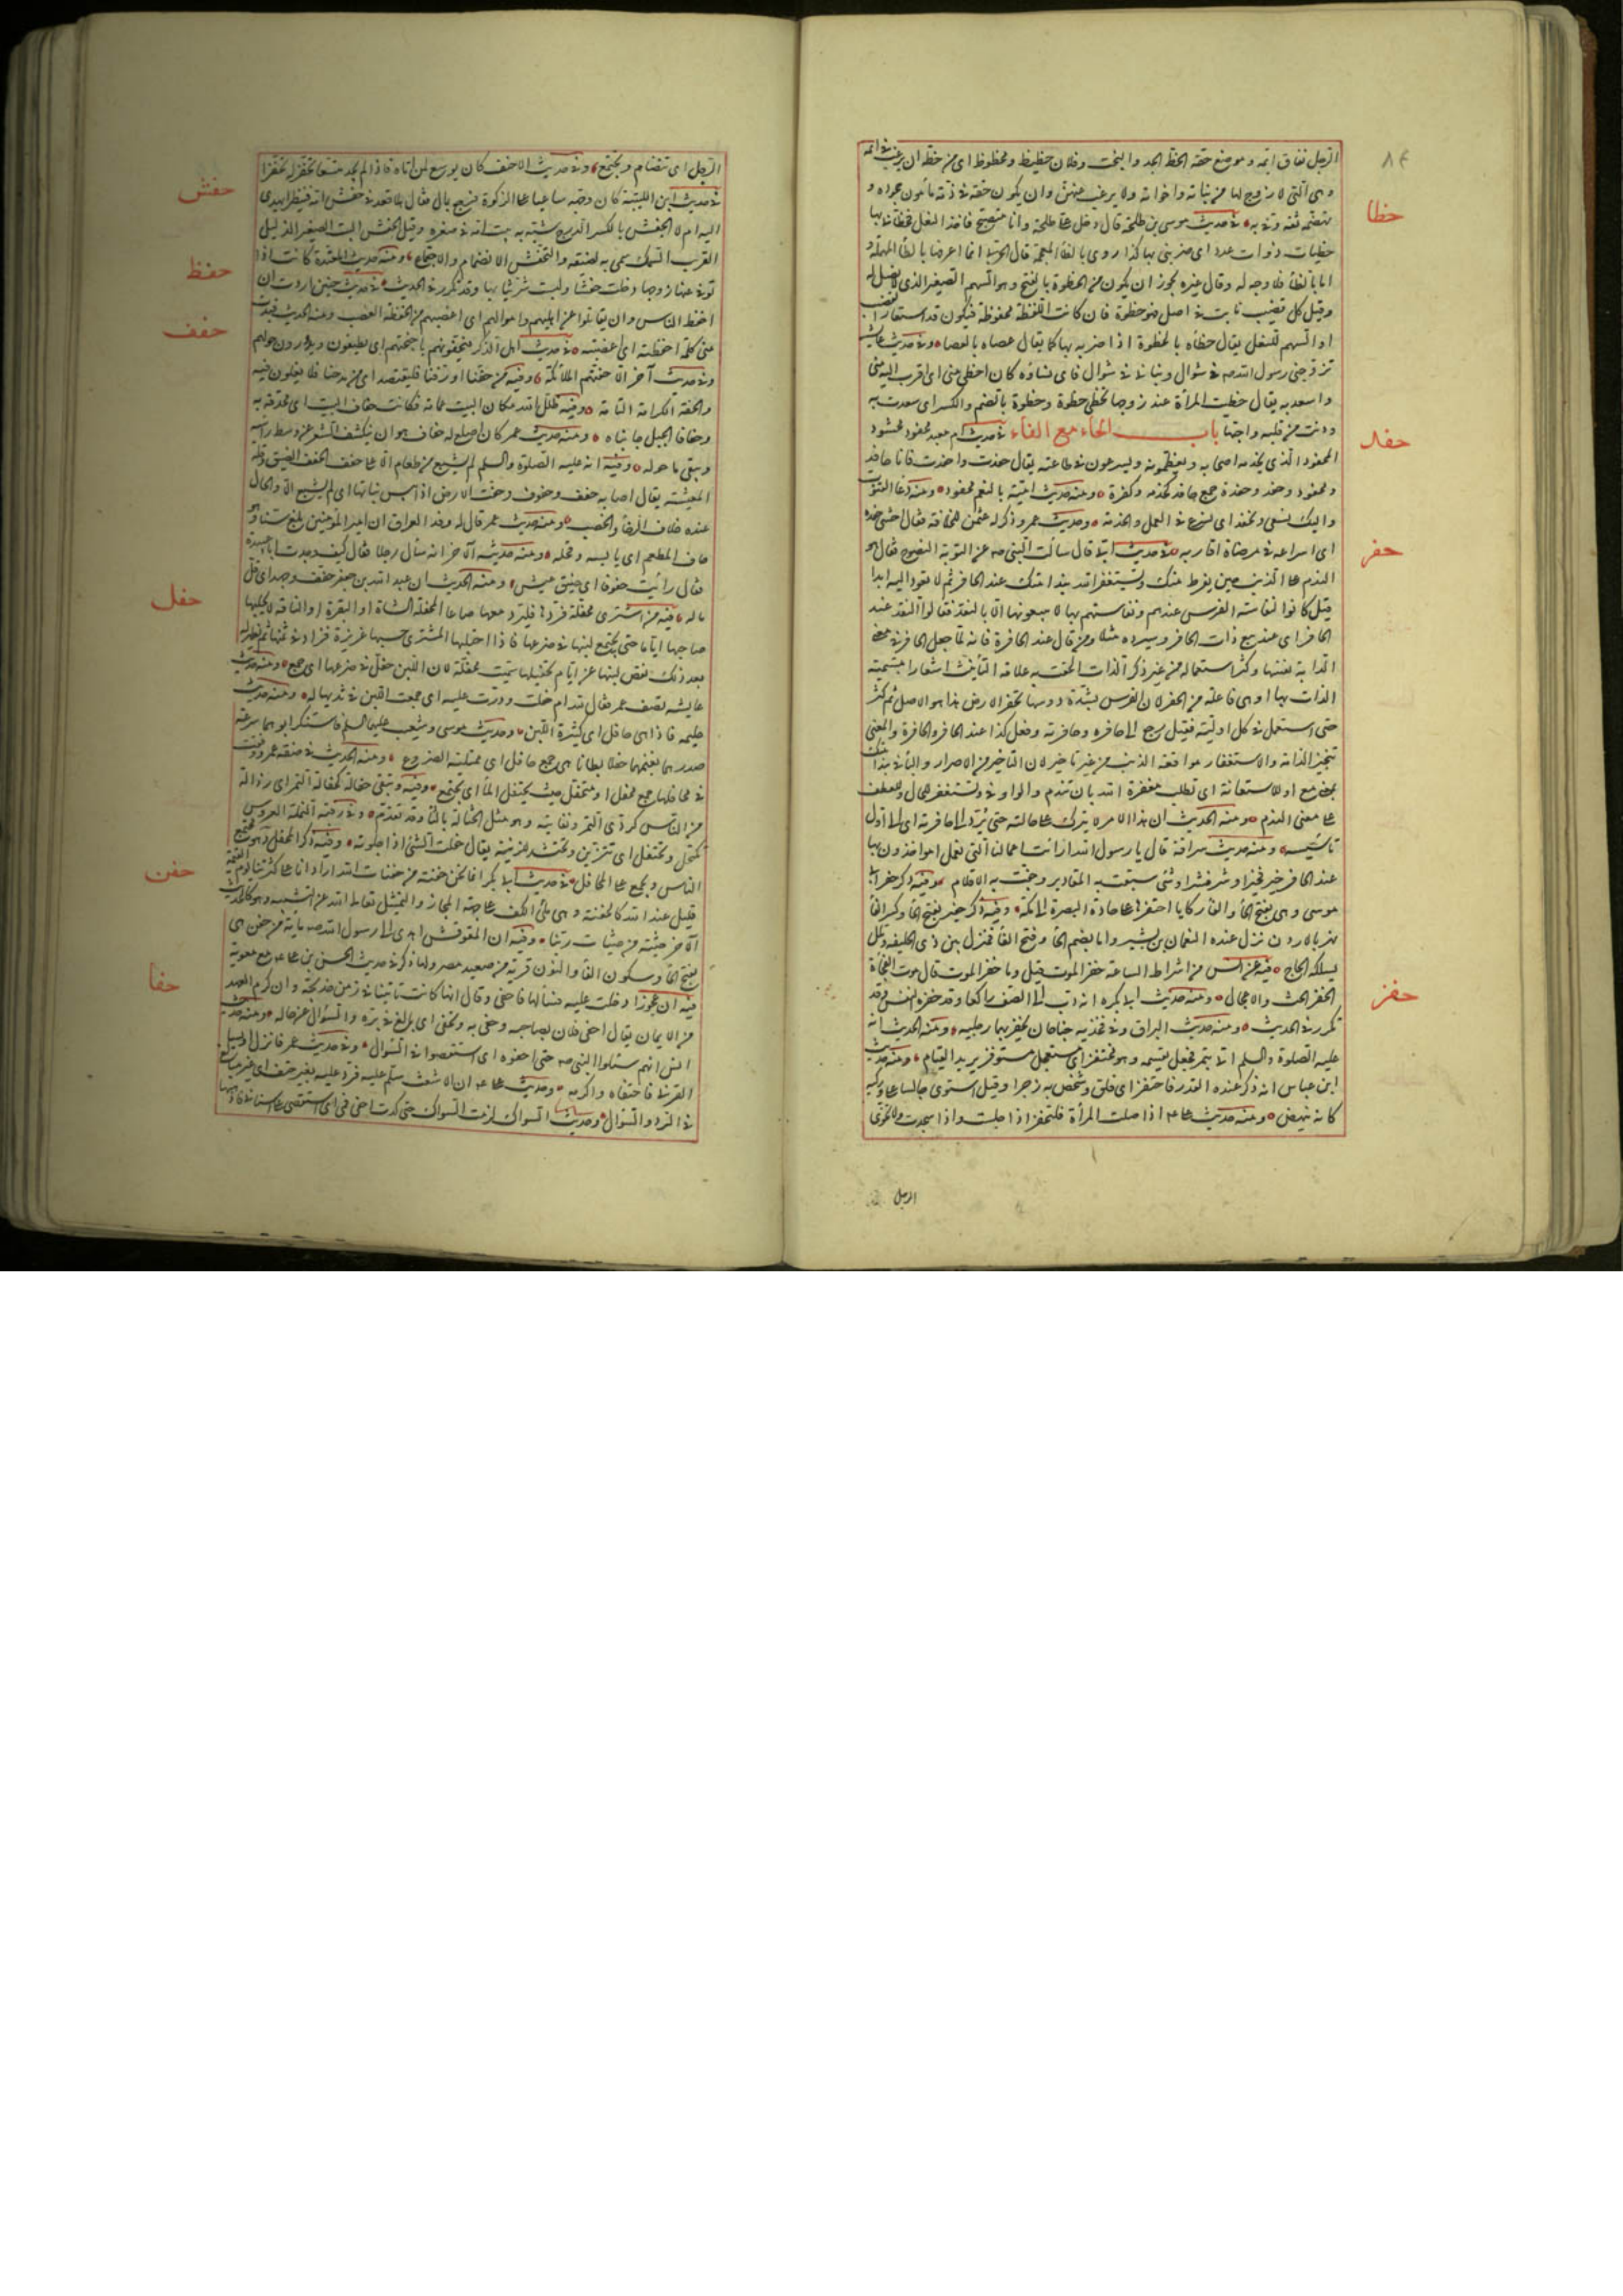 ٨٤
الرجل نفاق ايمه وموضع حقه الحظ الجد والبخت وفلان حظيظ ومحظوظ اى من حظه ان يرغب فى ايمه
وهى التى لا زوج لها من بناته واخواته ولا يرغب عنهن وان يكون حقه فى ذمة مأمون جحوده و
تهضمه ثقة وفى به ٥ فى حديث موسى بن طلحة قال دخل على طلحة وانا متصبح فاخذ النعل فحظانى بها
حظا
حظيات ذوات عدد اى ضربنى بها كذا روى بالظاء المعجمة قال الحربى انما اعرفها بالطاء المهملة و
اما بالظاء فلا وجه له وقال غيره يجوز ان يكون من الحظوة بالفتح وهو السهم الصغير الذى لا نصل له
وقيل كل قضيب نابت فى اصل فهو حظوة فان كانت اللفظة محفوظة فيكون قد استعار القضيب
او السهم للنعل يقال حظاه بالحظوة اذا ضربه بها كما يقال عصاه بالعصا ٥ وفى حديث عايشة
تزوجنى رسول الله صه فى شوال وبنى بى فى شوال فاى نسائه كان احظى منى اى اقرب اليه منى
واسعد به يقال حظيت المرأة عند زوجها تحظى حظوة وحظوة بالضم والكسر اى سعدت به
ودنت من قلبه واحبها باب الحاء مع الفاء فى حديث ام معبد محفود محشود
حفد
المحفود الذى يخدمه اصحابه ويعظمونه ويسرعون فى طاعته يقال حفدت واحفدت فانا حافد
ومحفود وحفد وحفدة جمع حافد كخدم وكفرة ٥ ومنه حديث امية بالنعم محفود ٥ ومنه دعاء القنوت
واليك نسعى ونحفد اى نسرع فى العمل والخدمة ٥ وحديث عمر وذكر له عثمن للخلافة فقال اخشى حفده
اى اسراعه فى مرضاة اقاربه ٥ فى حديث ابى قال سألت النبى صه عن التوبة النصوح فقال هو
حفر
الندم على الذنب حين يفرط منك وتستغفر الله بندامتك عند الحافر ثم لا تعود اليه ابدا
قيل كانوا لنفاسة الفرس عندهم ونفاستهم بها لا يبيعونها الا بالنقد فقالوا النقد عند
الحافر اى عند بيع ذات الحافر وسيروه مثلا ومن قال عند الحافرة فانه لما جعل الحافر فى معنى
الدابة نفسها وكثر استعماله من غير ذكر الذات الحقت به علامة التأنيث اشعارا بتسمية
الذات بها او هى فاعلة من الحفر لان الفرس بشدة دوسها تحفر الارض هذا هو الاصل ثم كثر
حتى استعمل فى كل اولية فقيل رجع الى حافره وحافرته وفعل كذا عند الحافر والحافرة والمعنى
تنجيز الندامة والاستغفار مواقعة الذنب من غير تأخير لان التأخير من الاصرار والباء فى بندامتك
بمعنى مع او للاستعانة اى تطلب مغفرة الله بان تندم والواو فى وتستغفر للحال او للعطف
على معنى الندم ٥ ومنه الحديث ان هذا الامر لا يترك على حالته حتى يرد الى حافرته اى الى اول
تأسيسه ٥ ومنه حديث سراقة قال يا رسول الله ارأيت اعمالنا التى نعمل امواخذون بها
عند الحافر خير فخير او شر فشر او شئ سبقت به المقادير وجفت به الاقلام ٥ وفيه ذكر حفر ابى
موسى وهى بفتح الحاء والفاء ركايا احتفرها على جادة البصرة الى مكة ٥ وفيه ذكر حفير بفتح الحاء وكسر الفاء
نهر بالاردن نزل عنده النعمان بن بشير واما بضم الحاء وفتح الفاء فمنزل بين ذى الحليفة وملل
يسلكه الحاج ٥ فيه عن انس من اشراط الساعة حفز الموت قيل وما حفز الموت قال موت الفجأة
حفز
الحفز الحث والاعجال ٥ ومنه حديث ابى بكره انه دب الى الصف راكعا وقد حفزه النفس وقد
تكرر فى الحديث ٥ ومنه حديث البراق وفى فخذيه جناحان يحفز بهما رجليه ٥ ومنه الحديث انه
عليه الصلوة والسلم اتى بتمر فجعل يقسمه وهو محتفز اى مستعجل مستوفز يريد القيام ٥ ومنه حديث
ابن عباس انه ذكر عنده القدر فاحتفز اى قلق وشخص به زجرا وقيل استوى جالسا على وركيه
كانه ينهض ٥ ومنه حديث على عه اذا صلت المرأة فلتحتفز اذا جلست واذا سجدت ولا تخوى
الرجل
الرجل اى تتضام وتجتمع ٥ وفى حديث الاحنف كان يوسع لمن اتاه فاذا لم يجد متسعا تحفز له تحفزا
فى حديث ابن اللتبية كان وجهه ساعيا على الزكوة فرجع بمال فقال هلا قعد فى حفش امه فينظر ايهدى
حفش
اليه ام لا الحفش بالكسر الدرج شبه به بيت امه فى صغره وقيل الحفش البيت الصغير الذليل
القريب السمك سمى به لضيقه والتحفش الانضمام والاجتماع ٥ ومنه حديث المعتدة كانت اذا
توفى عنها زوجها دخلت حفشا ولبست شر ثيابها وقد تكرر فى الحديث ٥ فى حديث حنين اردت ان
حفظ
احفظ الناس وان يقاتلوا عن اهليهم واموالهم اى اغضبهم من الحفيظة الغضب ومنه الحديث فبدرت
منى كلمة احفظته اى اغضبته ٥ فى حديث اهل الذكر فيحفونهم باجنحتهم اى يطيفون ويدورون حولهم
حفف
وفى حديث آخر الا حفتهم الملائكة ٥ وفيه من حفنا او رفنا فليقتصد اى من مدحنا فلا يغلون فيه
والحفة الكرامة التامة ٥ وفيه ظلل الله مكان البيت غمامة فكانت حفاف البيت اى محدقة به
وحفافا الجبل جانباه ٥ ومنه حديث عمر كان اصلع له حفاف هو ان ينكشف الشعر عن وسط رأسه
ويبقى ما حوله ٥ وفيه انه عليه الصلوة والسلم لم يشبع من طعام الا على حفف الحفف الضيق وقلة
المعيشة يقال اصابه حفف وحفوف وحفت الارض اذا يبس نباتها اى لم يشبع الا والحال
عنده خلاف الرخاء والخصب ٥ ومنه حديث عمر قال له وفد العراق ان امير المؤمنين بلغ سنا وهو
حاف المطعم اى يابسه وقحله ٥ ومنه حديثه الآخر انه سأل رجلا فقال كيف وجدت ابا عبيدة
فقال رأيت حفوفا اى ضيق عيش ٥ ومنه الحديث ان عبد الله بن جعفر حفف وجهد اى قل
ماله ٥ فيه من اشترى محفلة فردها فليرد معها صاعا المحفلة الشاة او البقرة او الناقة لا يحلبها
حفل
صاحبها اياما حتى يجتمع لبنها فى ضرعها فاذا احتلبها المشترى حسبها غزيرة فزاد فى ثمنها ثم يظهر له
بعد ذلك نقص لبنها عن ايام تحفيلها سميت محفلة لان اللبن حفل فى ضرعها اى جمع ٥ ومنه حديث
عايشه تصف عمر فقال لله ام حفلت ودرت عليه اى جمعت اللبن فى ثديها له ٥ ومنه حديث
حليمه فاذا هى حافل اى كثيرة اللبن ٥ وحديث موسى وشعيب عليهما السلم فاستنكر ابوهما سرعة
صدرهما بغنمهما حفلا بطانا هى جمع حافل اى ممتلئة الضروع ٥ ومنه الحديث فى صفة عمر ودفقت
فى محافلها جمع محفل او محتفل حيث يحتفل الماء اى يجتمع ٥ وفيه وتبقى حفالة كحفالة التمر اى رذالة
من الناس كردى التمر ونفايته وهو مثل الحثالة بالثاء وقد تقدم ٥ وفى رقية النملة العروس
تكتحل وتحتفل اى تتزين وتحتشد للزينة يقال حفلت الشئ اذا جلوته ٥ وفيه ذكر المحفل وهو مجتمع
الناس ويجمع على المحافل ٥ فى حديث ابى بكر انما نحن حفنة من حفنات الله اراد انا على كثرتنا يوم القيمة
حفن
قليل عند الله كالحفنة وهى ملء الكف على جهة المجاز والتمثيل تعالى الله عن التشبيه وهو كالحديث
الآخر حثية من حثيات ربنا ٥ وفيه ان المقوقس اهدى الى رسول الله صه مارية من حفن هى
بفتح الحاء وسكون الفاء والنون قرية من صعيد مصر ولها ذكر فى حديث الحسن بن على عه مع معوية
فيه ان عجوزا دخلت عليه فسألها فاحفى وقال انها كانت تأتينا فى زمن خديجة وان كرم العهد
حفا
من الايمان يقال احفى فلان بصاحبه وحفى به وتحفى اى بالغ فى بره والسؤال عن حاله ٥ ومنه حديث
انس انهم سألوا النبى صه حتى احفوه اى استقصوا فى السؤال ٥ وفى حديث عمر فانزل اويسا
القرنى فاحتفاه واكرمه ٥ وحديث على عه ان الاشعث سلم عليه فرد عليه بغير تحف اى غير مبالغ
فى الرد والسؤال ٥ وحديث السواك لزمت السواك حتى كدت احفى فى اى استقصى على اسنانى فاذهبها